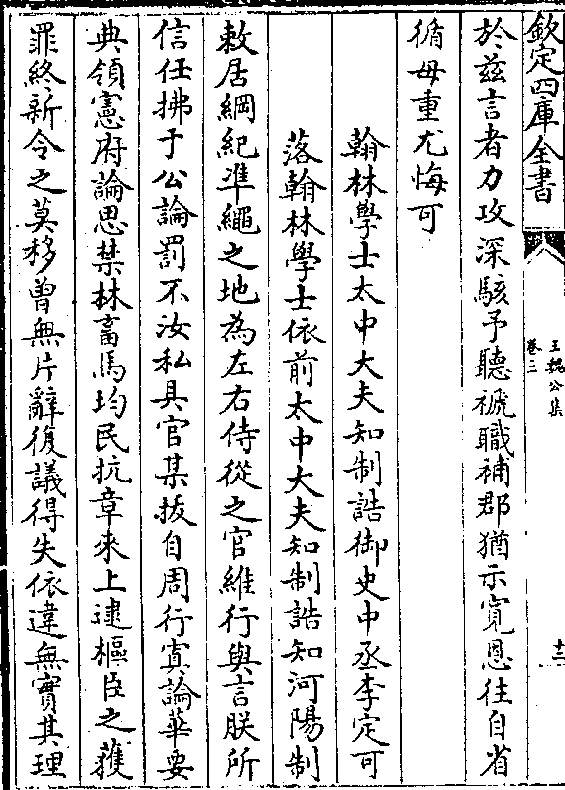 欽定四庫全書
王魏公集
卷三
十二
於兹言者力攻深駭予聽褫職補郡猶示寛恩往自省
循毋重尤悔可
翰林學士太中大夫知制誥御史中丞李定可
落翰林學士依前太中大夫知制誥知河陽制
敕居綱紀凖繩之地為左右侍從之官維行與言朕所
信任拂于公論罰不汝私具官某拔自周行寘論華要
典領憲府論思禁林畜馬均民抗章來上逮樞臣之䕶
罪終新令之莫移曾無片辭復議得失依違無實其理